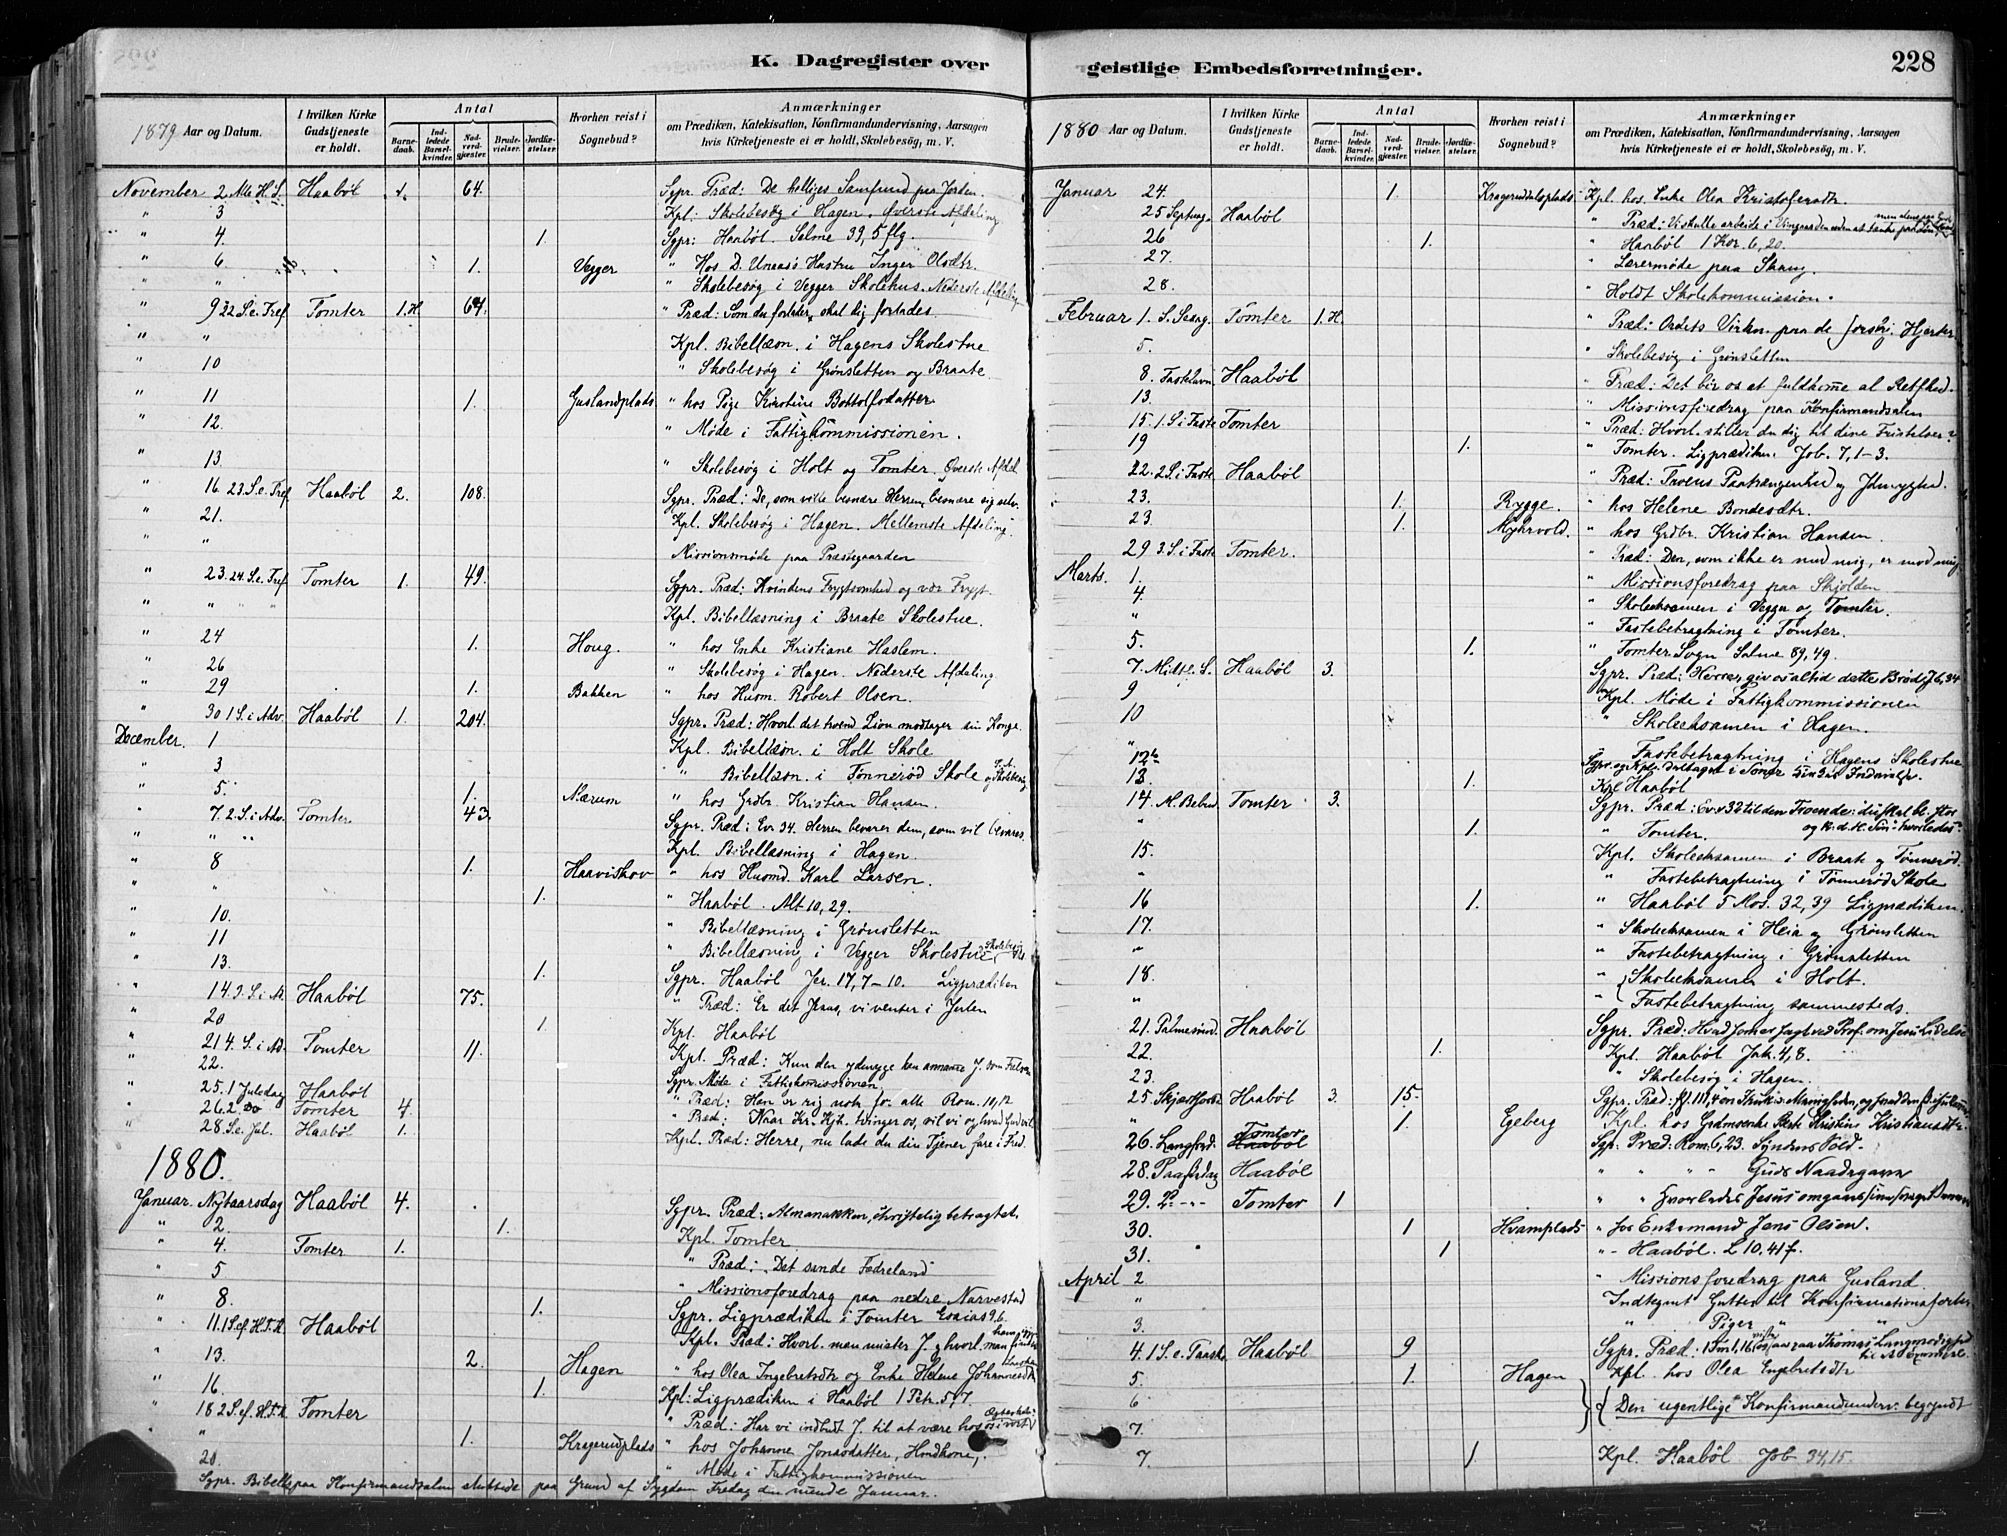 K. Dagregister over
1879 Aar og Datum. I hvilken Kirke Gudstjeneste er holdt. Antal Barnedaab. Indledede Barselkvinder. Nadverdgjester. Brudevielser. Jordfæstelser. Hvorhen reist i Sognebud? Anmærkninger om Prædiken, Katekisation, Konfirmandundervisning, Aarsagen hvis Kirketjeneste ei er holdt, Skolebesøg, m. V.
November 2 Alle H. S. Haabøl 1. 64. Sgpr. Præd: De helliges Samfund paa Jorden.
" 3 Kpl: Skolebesøg i Hagen. Øverste Afdeling
" 4. 1. Sgpr: Haabøl. Salme 39, 5 flg.
" 6 1. Vegger " Hos D. Hustru Inger Olsdtr.
" " " Skolebesøg i Vegger Skolehus. Nederste Afdeling
" 9 22 S. e. Tref Tomter 1. H. 64. " Præd: Som du forlader, skal dig forlades
" " Kpl. Bibellæsn. i Hagens Skolestue
10 " Skolebesøg i Grønsletten og Braate.
" 11 1. Guslandplads " hos Pige Kirstine Bottolfsdatter
" 12. " Møde i Fattigkommissionen.
" 13. " Skolebesøg i Holt og Tomter. Øverste Afdel.
" 16. 23. S. e. Tref Haabøl 2. 108. Sgpr. Præd: De, som ville besnære Herren, besnære sig selv.
" 21. Kpl. Skolebesøg i Hagen. Mellemste Afdeling.
" " Missionsmøde paa Præstegaarden
" 23. 24. S. e. Tref Tomter 1. 49. Sgpr. Præd: Kvindens Frygtsomhed og vor Frygt.
" " " Kpl. Bibellæsning i Braate Skolestue.
" 24 1. Houg. " hos Enke Kristiane Haslem.
" 26 " Skolebesøg i Hagen. Nederste Afdeling
" 29 1. Bakken " hos Husm. Robert Olsen.
" 30 1 S. i Adv. Haabøl 1. 204. Sgpr. Præd: Hvorl. det troend. Zion modtager sin Konge.
December. 1 Kpl. Bibellæsn. i Holt Skole
" 3 " Bibellæsn. i Tønnerød Skole og Skolebesøg
" 5. 1. Nærum " hos Grdbr. Kristian Hansen.
" 7. 2. S. i Adv. Tomter 43. Sgpr. Præd: Ev. 34. Herren bevarer dem, som vil bevares.
" " " Kpl. Bibellæsning i Hagen.
" 8 1. Haaviskov " hos Husmd. Karl Larsen.
" " 1. " Haabøl. Alt 10, 29.
" 10. " Bibellæsning i Grønsletten
" 11 " Bibellæsning i Vegger Skolestue Skolebesøg
" 13. 1. Sgpr. Haabøl Jer. 17, 7-10. Ligprædiken
" 14. 3. S. i A. Haabøl 75. " Præd: Er det Jesus, vi venter i Julen
" 20 1. Kpl. Haabøl
" 21 4. S. i Ad. Tomter 11. Kpl. Præd: Kun den ydmyge kan annamme J. som Frelser
" 22. Sgpr. Møde i Fattigkomissionen.
" 25. 1 Juledag Haabøl " Præd: Han er rig nok for alle Rom. 10, 12
" 26 2. Do Tomter 4. " Præd: Naar Kr. Kjh. tvinger os, vil vi og hvad Gud vil
" 28 S. e. Jul. Haabøl 1. Kpl. Præd: Herre, nu lade du din Tjener fare i Fred.
1880.
Januar. Nytaarsdag Haabøl 4. Sgpr. Præd: Almanakken, christelig betragtet.
" 2. 1. Kpl. Tomter
" 4. Tomter 1. " Præd: Det sande Fædreland
" 5 " Missionsforedrag paa nedre Narvestad
" 8. 1. Sgpr. Ligprædiken i Tomter Esaias 9.6.
" 11. 1 S. ef. H. T. K. Haabøl Kpl. Præd: Hvorl. man mister J. og hvorl. man finder ham igjen
" 13. 2. Hagen " hos Olea Ingebretsdtr og Enke Helene Johannesdtr
" 16. 1. Kpl: Ligprædiken i Haabøl 1 Petr. 5, 7.
" 18 2 S. ef. H. T. K. Tomter " Præd: Har vi indbudt J. til at være hos os i vort Ægteskab
" " 1. Kragerudplads " hos Johanne Jonasdatter, Hmdkone.
20. " Møde i Fattigkommissionen
Sgpr. Bibell. paa Konfirmandsalen sluttede paa Grund af Sygdom Fredag den niende Januar.
geistlige Embedsforretninger. 228
1880 Aar og Datum. I hvilken Kirke Gudstjeneste er holdt. Antal Barnedaab. Indledede Barselkvinder. Nadverdgjester. Brudevielser. Jordfæstelser. Hvorhen reist i Sognebud? Anmærkninger om Prædiken, Katekisation, Konfirmandundervisning, Aarsagen hvis Kirketjeneste ei er holdt, Skolebesøg, m. V.
Januar 24. 1. Kragerudalsplads Kpl. hos. Enke Olea Kristofersdtr.
25 Septuag. Haabøl " Præd: Vi skulle arbeide i Vingaarden uden at tænke paa Løn
26 1. " Haabøl 1 Kor. 6, 20.
27. " Læremøde paa Skaug.
28. " Holdt Skolekommission.
Februar 1. S. Sexag. Tomter 1. H. " Præd: Ordets Virkn. paa de forskj. Hjerter
5. " Skolebesøg i Grønsletten
8. Fastelavn Haabøl " Præd: Det bør os at fuldkomme al Retfærd.
13. " Missionsforedrag paa Konfirmandsalen
15. 1. S. i Faste Tomter " Præd: Hvorl. stiller du dig til dine Fristelser?
19 1. " Tomter. Ligprædiken. Job. 7, 1-3.
22. 2 S. i Faste Haabøl " Præd: Troens Paatrængenhed og Ydmyghed.
23. 1. Rygge. " hos Helene Bondesdtr.
23. 1. Myhrvold. " hos Grdbr. Kristian Hansen.
29 3. S. i Faste Tomter. " Præd: Den, som ikke er med mig, er mod mig
Marts. 1. " Missionsforedrag paa Skjolden
4. " Skoleeksamen i Vegger og Tomter.
" " Fastebetragtning i Tomter.
5. 1. " Tomter Sogn Salme 89, 49.
7. Midf. S. Haabøl 3. Sgpr. Præd: Herre, giv os altid dette Brød J. 6, 34
9 Kpl. Møde i Fattigkommissionen
10 " Skoleeksamen i Hagen.
" " Fastebetragtning i Hagens Skolestue
12te Sgpr. og Kpl. deltaget i
13. 1. Kpl Haabøl
14. M. Bebud. Tomter 3. Sgpr. Præd: Ev. v 32 til den Troende: du skal bl. stor og k. d. H. Søn - hvorledes?
" 1. " Tomter.
15. Kpl. Skoleeksamen i Braate og Tønnerød.
" " Fastebetragtning i Tønnerød Skole
16 1. " Haabøl 5 Mos. 32, 39 Ligprædiken.
17. " Skoleeksamen i Heia og Grønsletten
" " Fastebetragtning i Grønsletten
18. " Skoleeksamen i Holt.
" " Fastebetragtning sammesteds.
21. Palmesønd. Haabøl Sgpr. Præd:
22. 1. Kpl. Haabøl Jak. 4, 8.
23. " Skolebesøg i Hagen
25. Skjærtorsd. Haabøl 3. 15. Sgpr. Præd:
" 1. Egeberg Kpl. hos Kristine Kristiansdtr
26. Langfred. Tomter Sgpr. Præd. Rom. 6, 23. Syndens Sold.
28. Paaskedag Haabøl " " " Guds Naadegave
29. 2den -"- Tomter 1 " " Hvorledes Jesus
30. 1 Hvamplads " hos Enkemand Jens Olsen.
31. 1 " - Haabøl. L 10. 41 f.
April 2 " Missionsforedrag paa Gusland
" Indtegnet Gutter til Konfirmationsforber.
3. " Piger " "
4. 1 S. e. Paaske Haabøl 9 Sgpr. Præd.
5. 1. Hagen Kpl. hos Olea Engebretsdtr
6 Den egentlige Konfirmandunderv. begyndt
7.
7. 1 Kpl. Haabøl Job 34, 15.